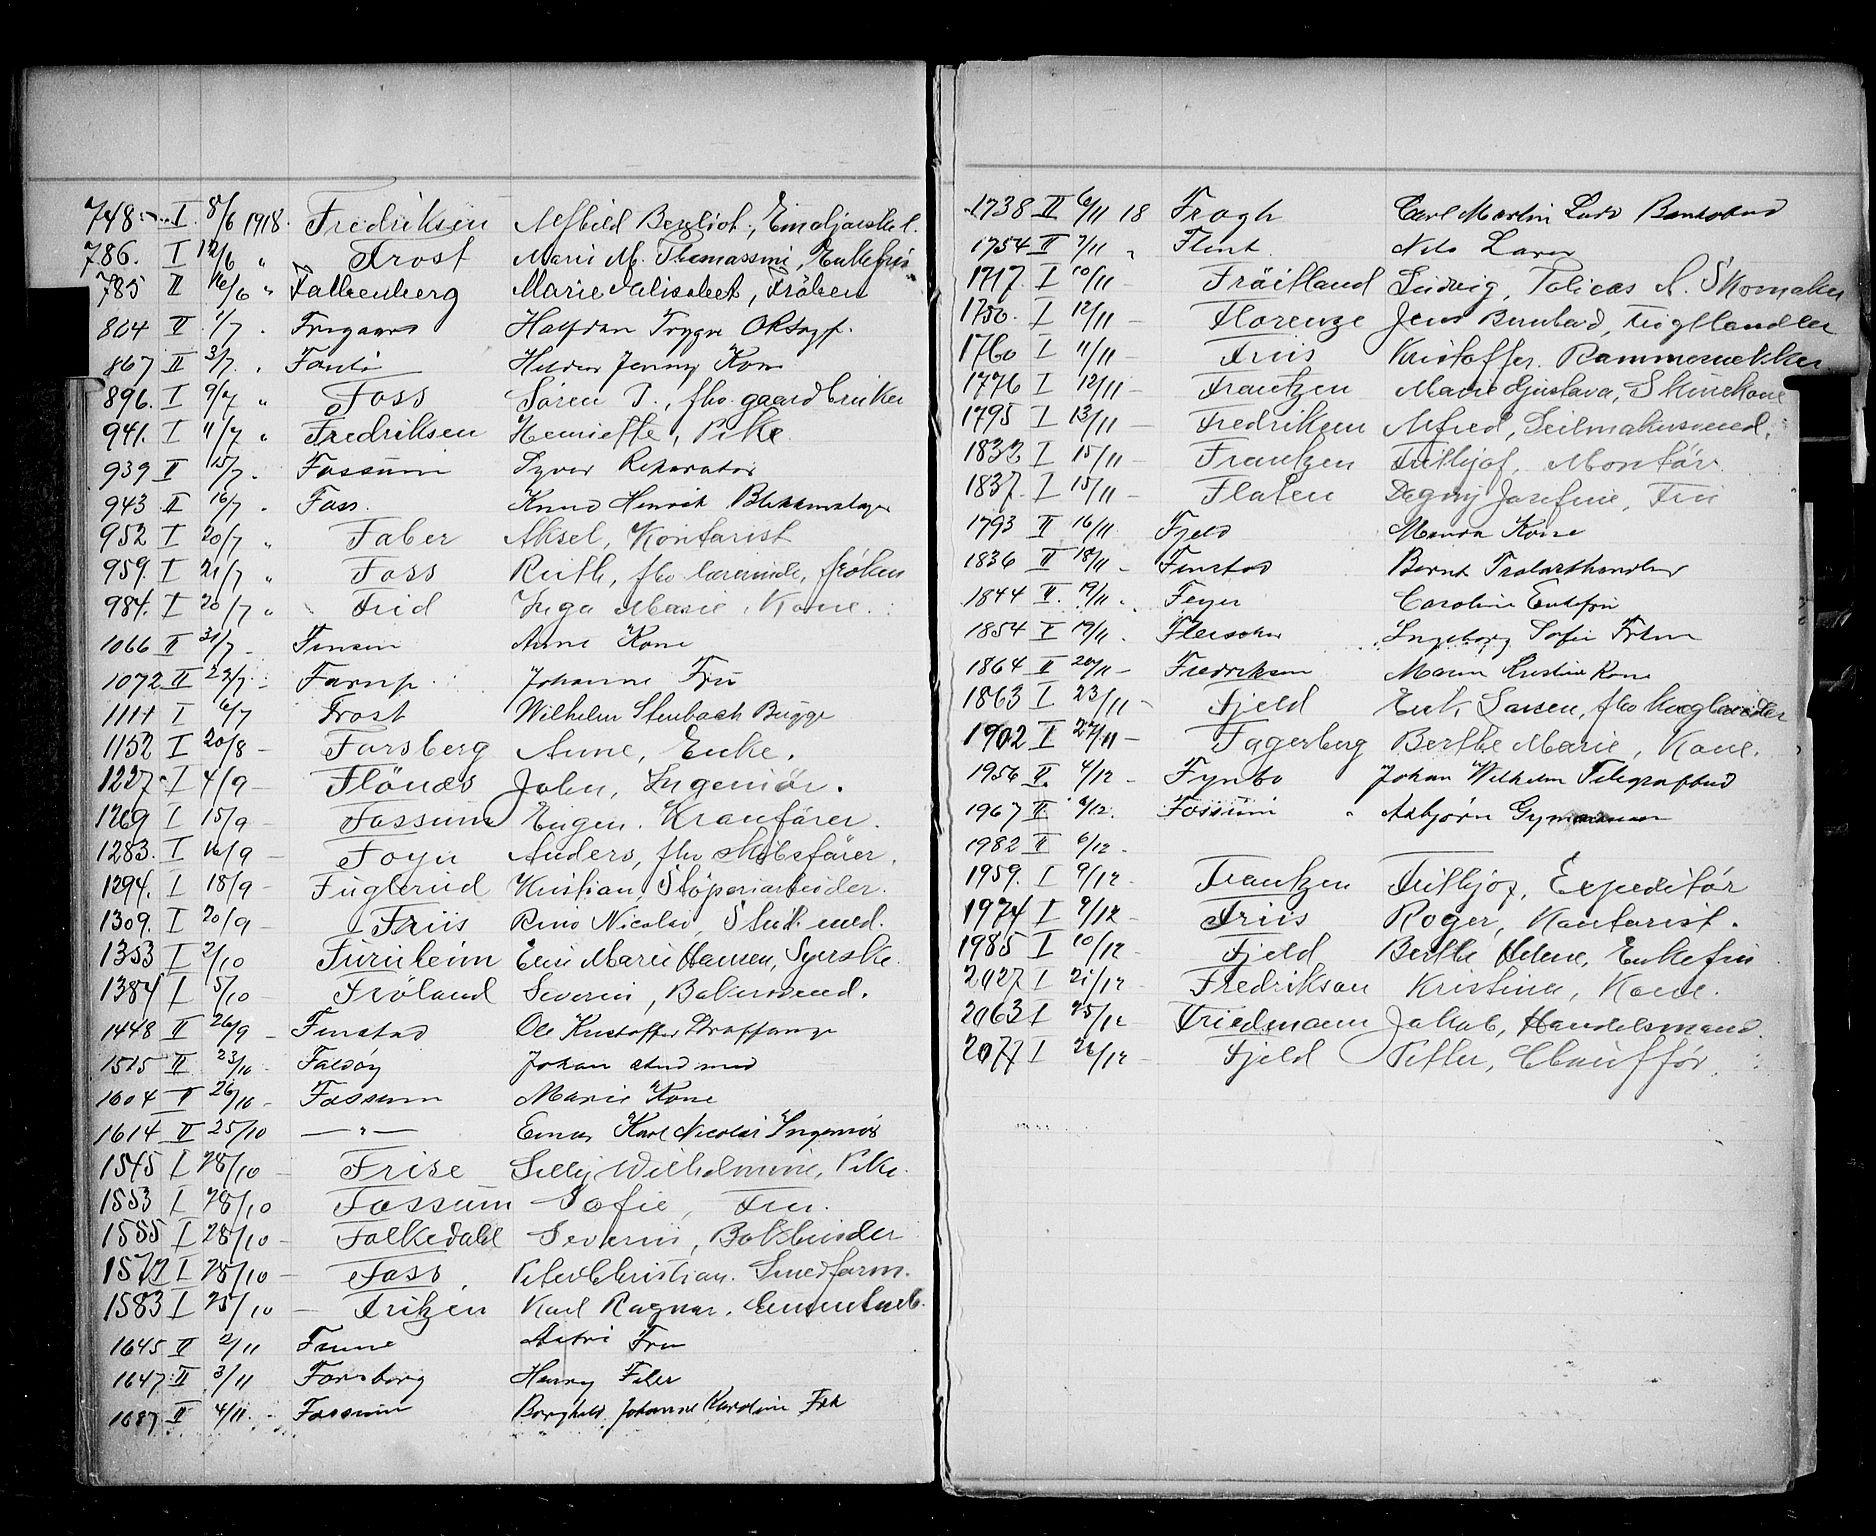 748 I 8/6 1918. Fredriksen Alfhild Bergliot,
786. I 12/6 " Frost Marie M. Thomassine, Enkefru
785 II 16/6 " Falkenberg Marie Elisabet, Frøken
864 II 1/7 . Halfdan Trygve
867 II 3/7. . Jenny Kone
896. I 9/7 " Foss Søren P., fhv. gaardbruker
941. I 11/7 " Fredriksen Henriette, Pike.
939 II 15/7 . Fossum Syver Reparatør
943 II 16/7 . Foss. Knud Henrik Blikkenslager
952 I 20/7 " Faber Aksel, Kontorist
959. I 21/7 " Foss Ruth, fhv. lærerinde, frøken
984. I 20/7 " Frid Inga Marie, Kone.
1066 II 31/7 - Finsen Anne Kone
1072 II 23/7 - Johanne Fru
1114 I 6/7 Frost Wilhelm Stenbach Bugge
1152 I 20/8 - Forsberg Anne, Enke.
1227 I 4/9 - Flönes John, Ingeniør.
1269 I 15/9 - Fossum Eugen. Kranfører.
1283. I 16/9 - Foyn Anders, fhv. skibsfører.
1294. I 18/9 - Fuglerud Kristian, Støperiarbeider.
1309. I 20/9 - Friis Nicolai, Stud. med.
1353 I 2/10 Furuheim Marie Hansen, Syerske.
1384 I 5/10 - Frøland Severin, Bakersvend.
1448 II 26/9 - Finstad Ole Kristoffer
1515 II 23/10 - Johan stud med
1604 II 26/10 - Fossum Marie Kone
1614 II 25/10 — " — Einar Karl Nicolai Ingeniør
1545 I 28/10 - Frise Lilly Wilhelmine, Pike.
1553 I 28/10 Fossum Sofie, Fru.
1555 I 28/10 - Falkedahl Severin, Bokbinder
1571 I 28/10 - Foss Peter Christian. Smedform.
1583 I 25/10 - Fritzen Karl Ragnar.
1645 II 2/11 Finne Astri Fru
1647 II 3/11 Forsberg Henry Filer
1687 II 4/11 - Fossum Borghild Johanne Karoline Frk
1738 II 6/11 18 Frogh Carl Martin
1754 II 7/11 " Flint Nils
1717 I 10/11 - Fröitland Ludvig, Tobias A. Skomaker
1750. I 12/11 - Florenze Jens Bernhard, Uighandler
1760 I 11/11 - Friis Kristoffer. Rammemekker
1776 I 12/11 - Frantzen Marie Gustava,
1795 I 13/11 - Fredriksen Alfred, Seilmakersvend.
1832 I 15/11 - Frantzen Frithjof, Montør.
1837. I 15/11 - Flaten Dagny Josefine, Fru
1793 II 16/11 Fjeld Manda Kone
1836 II 18/11 - Finstad Bernt Trelasthandler
1844 II. 19/11 . Feyer Caroline Enkefru
1854 II 19/11 . Fleischer Ingeborg Sofie Frkn
1864 II 20/11 - Fredriksen Maren Kristine Kone
1863 I 23/11 - Fjeld Erik Larsen, fhv
1902 I 27/11 - Fagerberg Berthe Marie, Kone.
1956 II. 4/12 - Fynbo Johan Wilhelm Telegrafbud
1967 II. 6/12. Fossum " Asbjørn
1982 II 6/12 -
1959. I 9/12 - Frantzen Frithjof, Expeditør
1974 I 9/12 - Friis Roger, Kontorist.
1985 I 10/12 - Fjeld Berthe Helene, Enkefru
2027 I 21/12 - Fredrikson Kristina, Kone.
2063 I 25/12 - Friedmann Jakob, Handelsmand
2077 I 26/12 - Fjeld Petter, Chauffør.